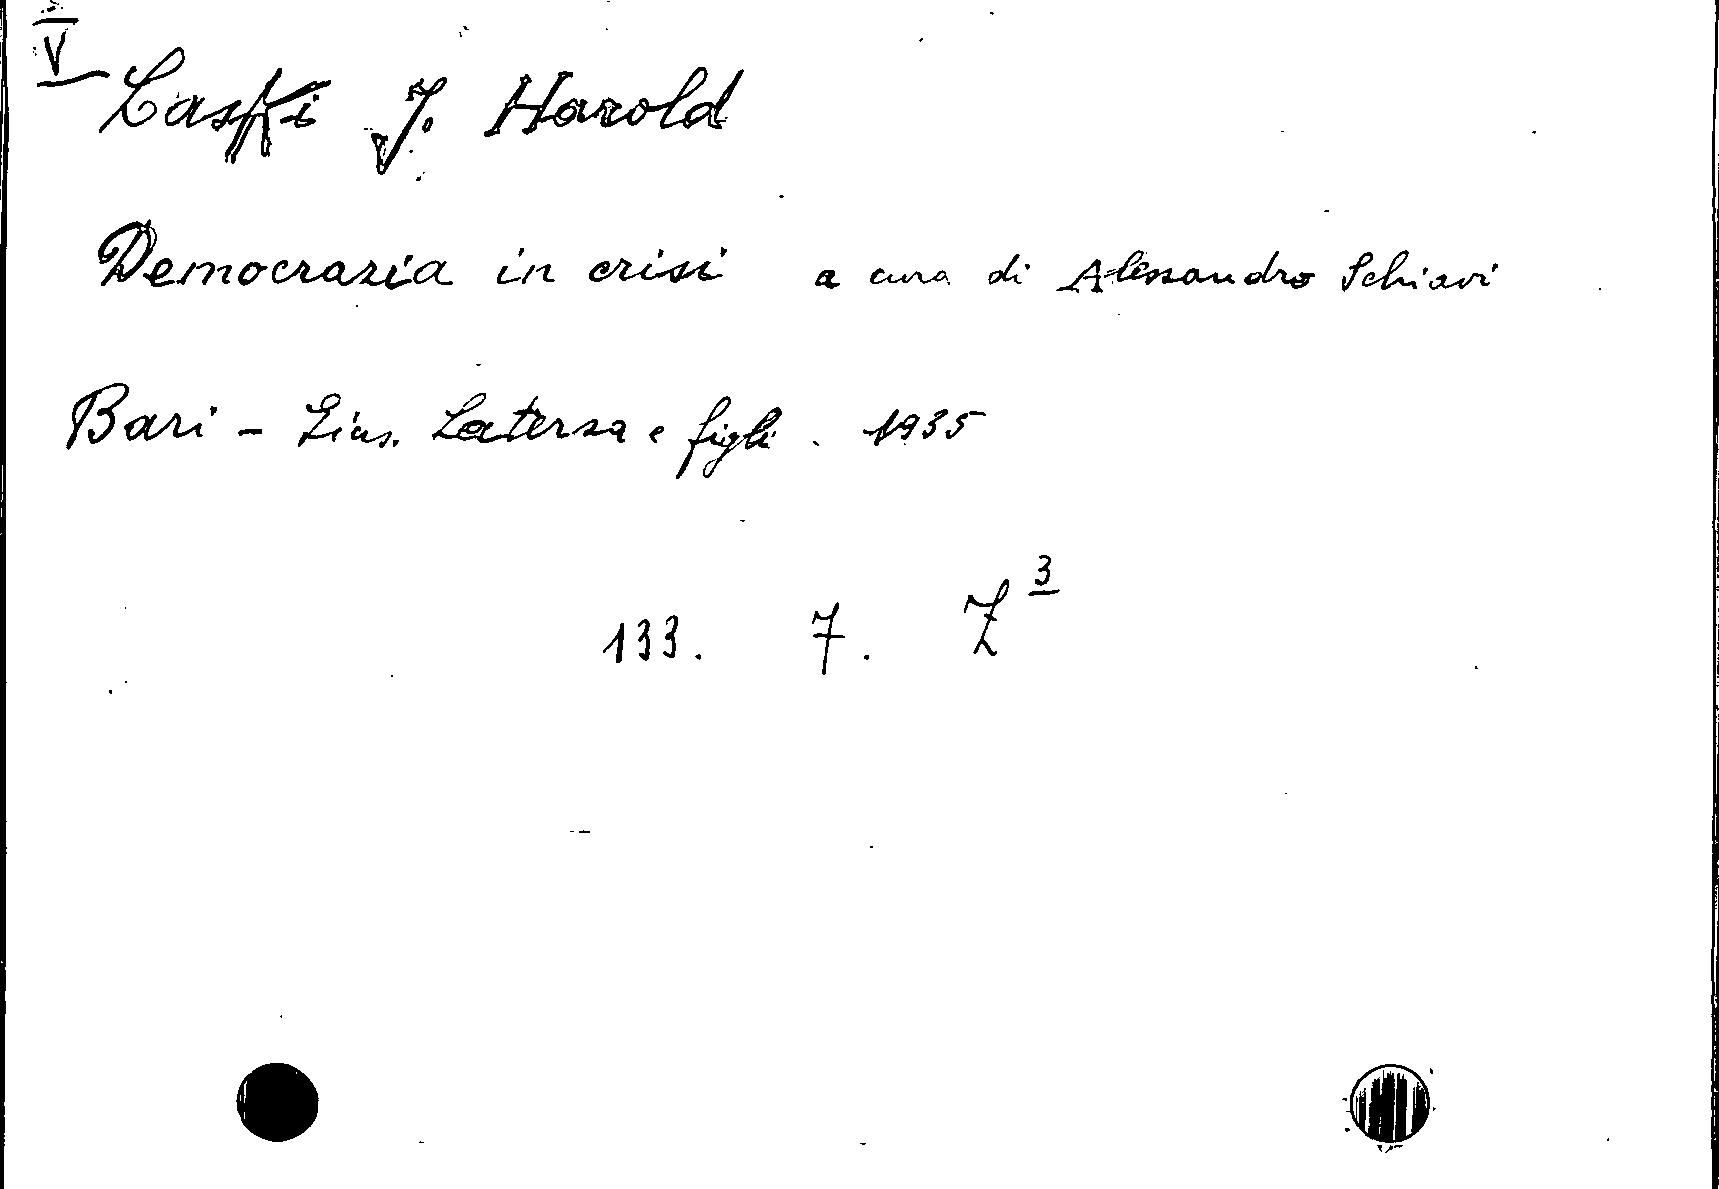 V
Laski J. Harold
Democrazia in crisi a cura di Alessandro Schiavi
Bari - Gius. Laterza e figli. 1935
133. 7. Z 3